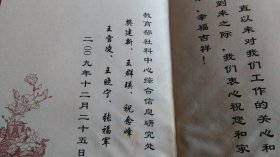 直以来对我们工作的关心和
到来之际,我们衷心祝您和家
,幸福吉祥!
教育部社科中心综合信息研究处
樊建新、王群瑛、祝念峰
王雪凌、王晓宁、张福军
二〇〇九年十二月二十五日